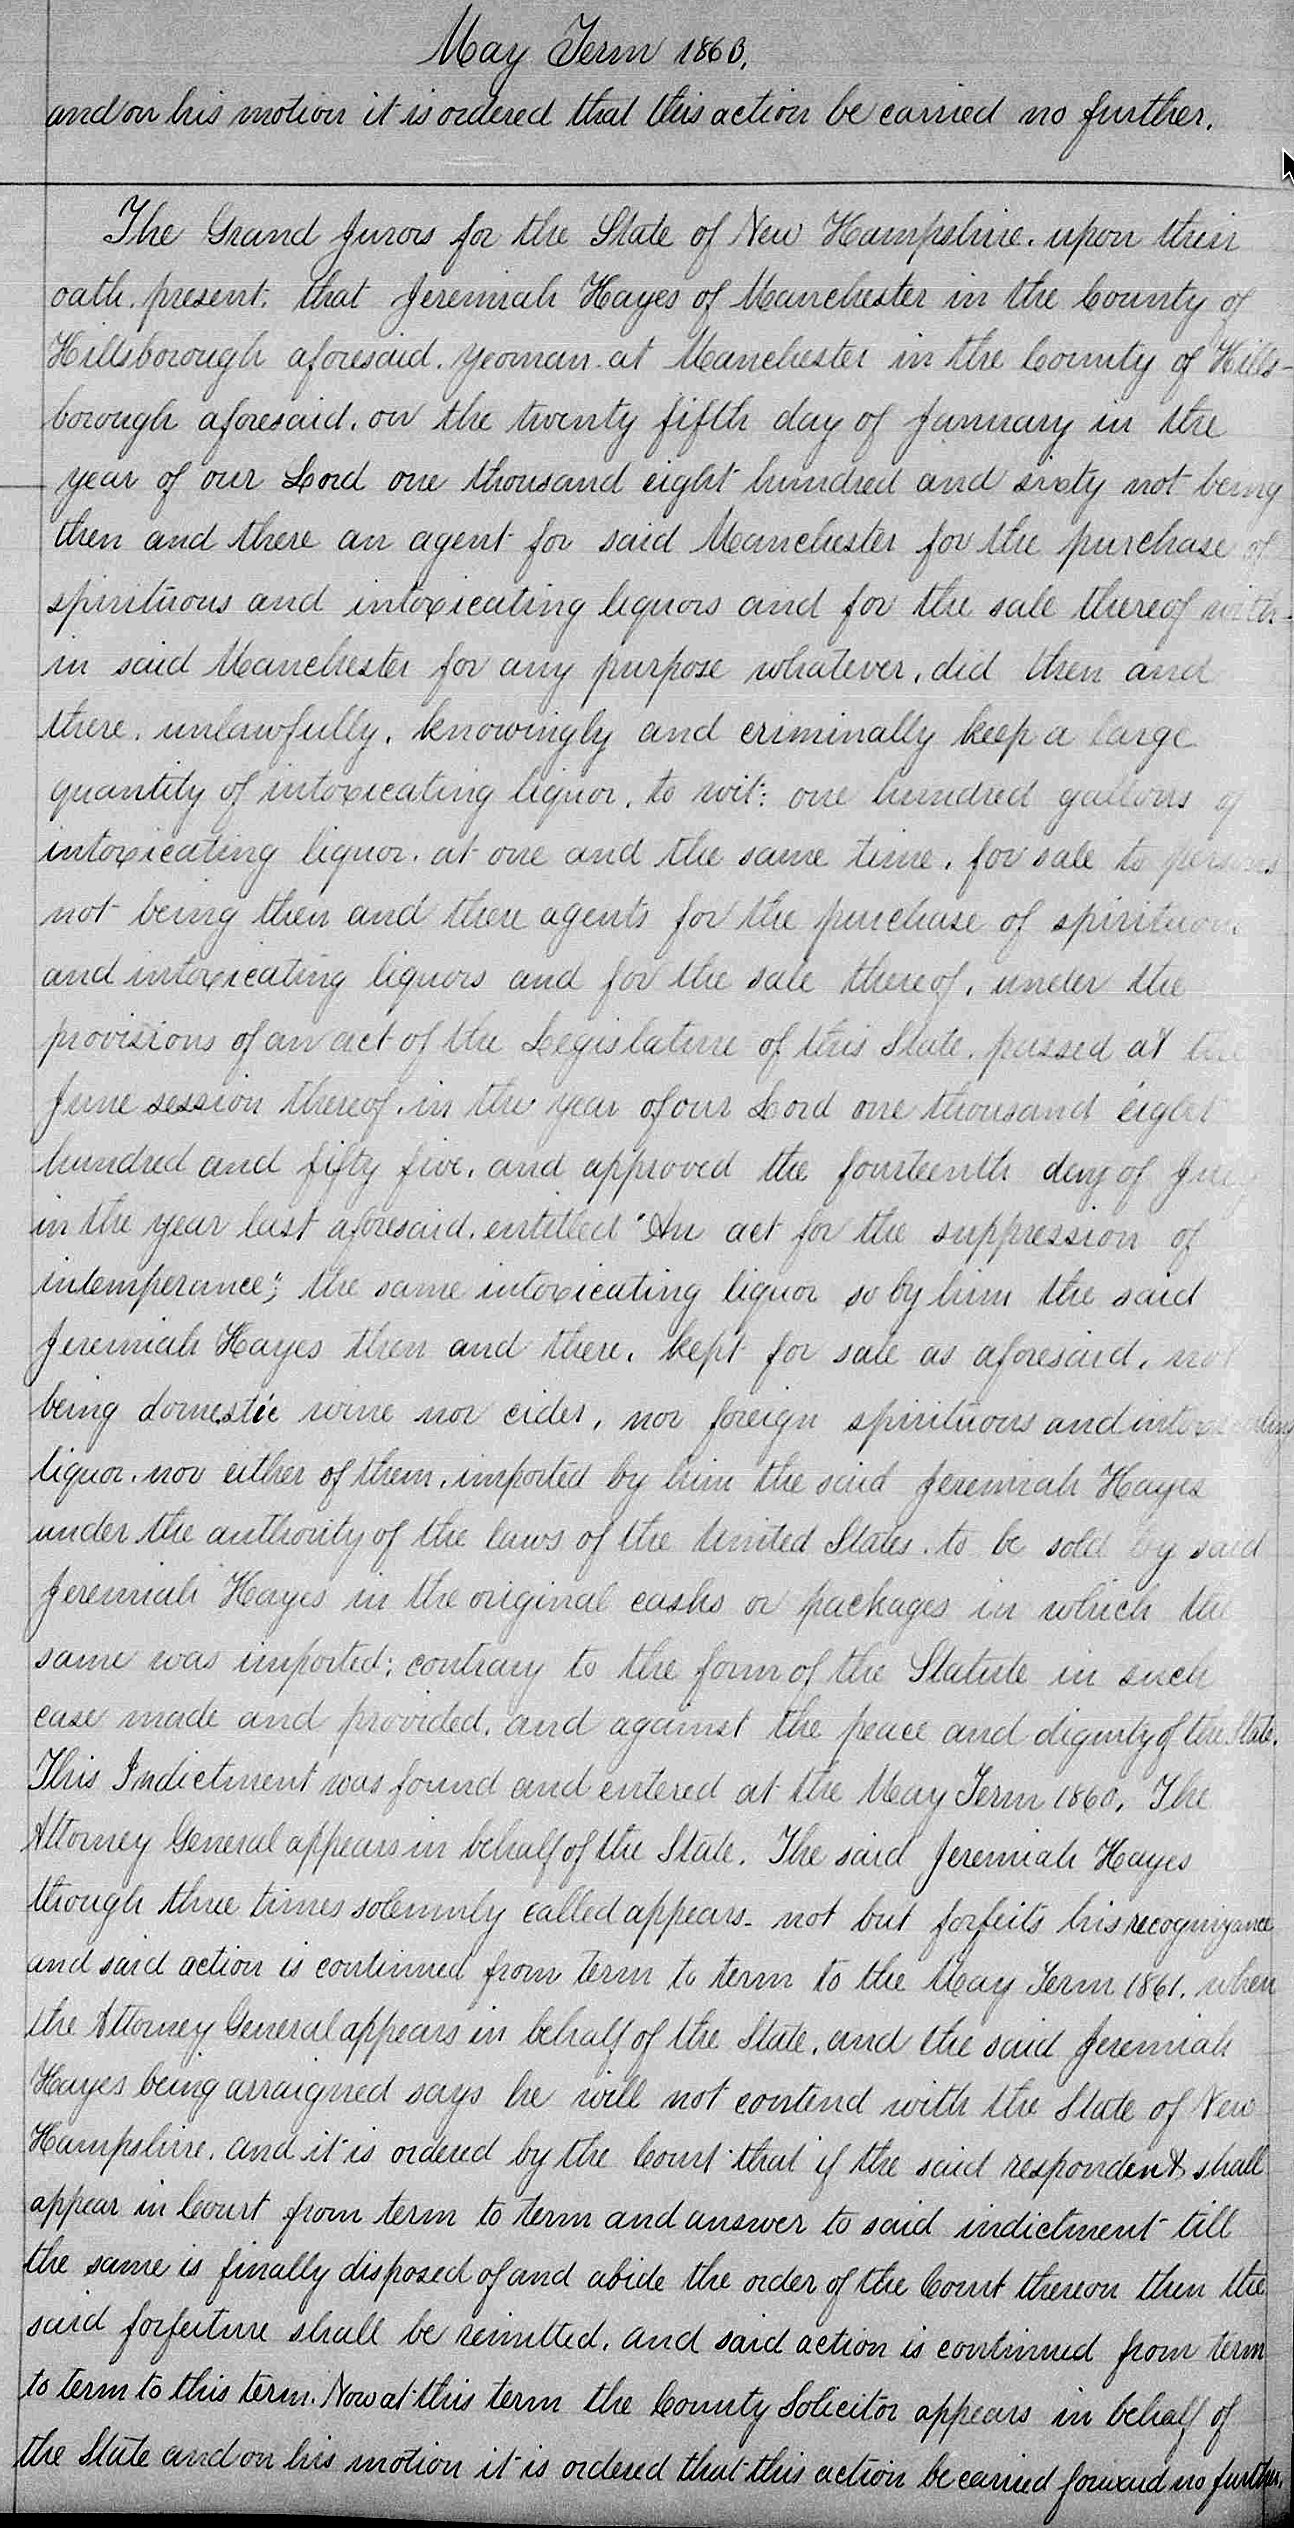 May Term 1863.
and on his motion it is ordered that this action be carried no further.
The Grand Jurors for the State of New Hampshire. upon their
oath. present. that Jeremiah Hayes of Manchester in the County of
Hillsborough aforesaid. yeoman. at Manchester in the County of Hills-
borough aforesaid. on the twenty fifth day of January in the
year of our Lord one thousand eight hundred and sixty not being
then and there an agent for said Manchester for the purchase of
spirituous and intoxicating liquors and for the sale thereof with-
in said Manchester for any purpose whatever, did then and
there, unlawfully, knowingly and criminally keep a large
quantity of intoxicating liquor, to wit: one hundred gallons of
intoxicating liquor. at one and the same time, for sale to persons
not being then and there agents for the purchase of spirituous
and intoxicating liquors and for the sale thereof, under the
provisions of an act of the Legislature of this State. passed at the
June session thereof. in the year of our Lord one thousand eight
hundred and fifty five, and approved the fourteenth day of July
in the year last aforesaid. entitled "An act for the suppression of
intemperance"; the same intoxicating liquor so by him the said
Jeremiah Hayes then and there, kept for sale as aforesaid, not
being domestic wine nor cider, nor foreign spirituous and intoxicating
liquor. nor either of them. imported by him the said Jeremiah Hayes
under the authority of the laws of the United States. to be sold by said
Jeremiah Hayes in the original casks or packages in which the
same was imported; contrary to the form of the Statute in such
case made and provided. and against the peace and dignity of the State.
This Indictment was found and entered at the May Term 1860, The
Attorney General appears in behalf of the State. The said Jeremiah Hayes
though three times solemnly called appears not but forfeits his recognizance
and said action is continued from term to term to the May Term 1861. when
the Attorney General appears in behalf of the State, and the said Jeremiah
Hayes being arraigned says he will not contend with the State of New
Hampshire. and it is ordered by the Court that if the said respondent shall
appear in Court from term to term and answer to said indictment till
the same is finally disposed of and abide the order of the Court thereon then the
said forfeiture shall be remitted, and said action is continued from term
to term to this term. Now at this term the County Solicitor appears in behalf of
the State and on his motion it is ordered that this action be carried forward no further.